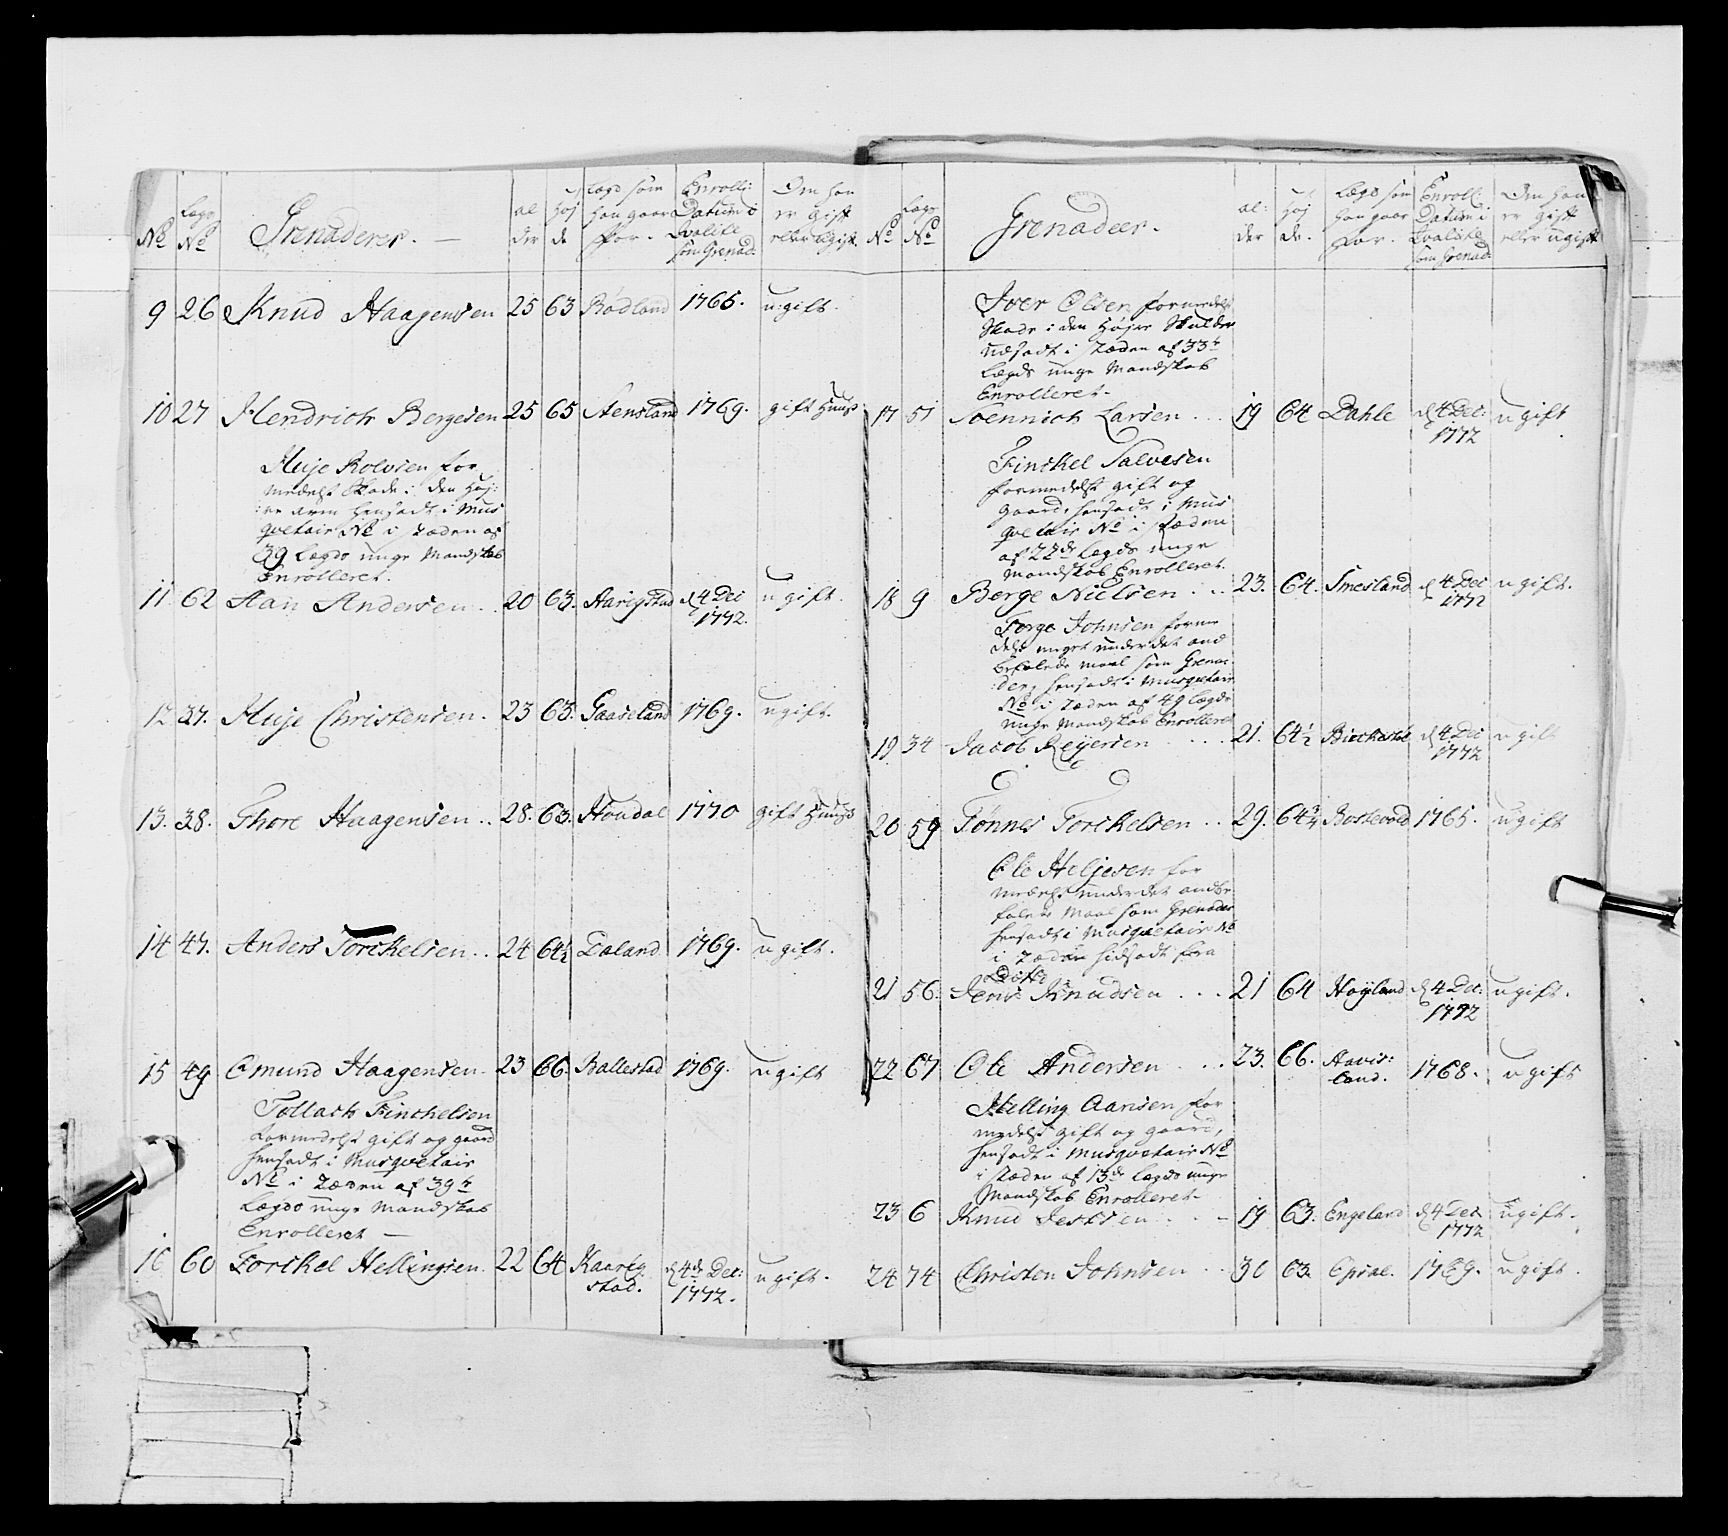 No Lægs No Grenaderer. al der Høj de Lægd som han gaar for. Enrolle: Datum i Qvalite som Grenad: Om han er gift eller ugift.
9 26 Knud Haagensen 25 63 Rödland 1765. ugift.
10 27 Hendrich Bergesen 25 65 Stensland 1769. gift Huus
Huje Rolvsen for
medelst Skade i den Høj:
:re arm hensadt i Mus
qvetair No i Stæden af
39 Lægds unge Mandskab
Enrolleret.
11. 62 Aan Andersen .. 20 63. Aarigstad d 4 Dec 1772. ugift.
12 37. Huje Christensen. 23 63. Gaaseland 1769. ugift.
13. 38. Thore Haagensen .. 28. 63. Houdal 1770 gift Huus
14 47. Anders Torckelsen .. 24 64½ Daland 1769. ugift.
15 49 Omund Haagensen. 23 66. Ballestad 1769. ugift
Tollack Finckelsen
formedelst gift og gaard
hensadt i Musqvetair
No i Stæden af 39te
Lægds unge Mandskab
Enrolleret —
16 60 Torckel Hellingsen. 22 64 Kaarig
stad. d 4de Dec: 1772. ugift.
No Lægs No Grenadeer. al: der Høj de. Lægd som han gaar for. Enroll: Datum i Qvalite som Grenad: Om han er gift eller ugift
Iver Olsen formedelst
Skade i den Højre Skulder
udsadt i Stæden af 33te
Lægds unge Mandskab
Enrolleret.
17 51 Tennich Larsen ... 19 64 Dahle d 4 Dec: 1772 ugift
Finckel Salvesen
formedelst gift og
gaard, hensadt i Mus
qvetair No i Stæden
af 22de Lægds unge
Mandskab Enrolleret
18 9 Berge Nielsen ... 23. 64. Smesland d 4 Dec 1772 ugift.
Torge Johnsen forme
delst noget under det and
befalede maal som Grena:
:der, hensadt i Musqvetair
No i Stæden af 49 Lægds
unge Mandskab Enrolleret
19 34 Jacob Reyersen .... 21. 64½ Birckeland d 4 Dec 1772 ugift
20 59 Tønnes Torckelsen .. 29. 64¾ Rostevold 1765. ugift
Ole Heljesen for
medelst under det andbe
falede Maal som Grenader
hensadt i Musqvetair No
i Stæden hidsadt fra
Ditto
21 56. Jens Knudsen ... 21 64 Høyland d 4 Dec: 1772 ugift.
22 67 Ole Andersen ... 23. 66. Aavis:
land. 1768. ugift
Helling Aansen for
medelst gift og gaard,
hensadt i Musqvetair No
i Stæden af 13de Lægds unge
Mandskab Enrolleret.
23 6 Knud Jessen .. 19 63. Engeland d 4 Dec 1772 ugift.
24 74 Christen Johnsen .. 30 63. Opsal. 1769. ugift.